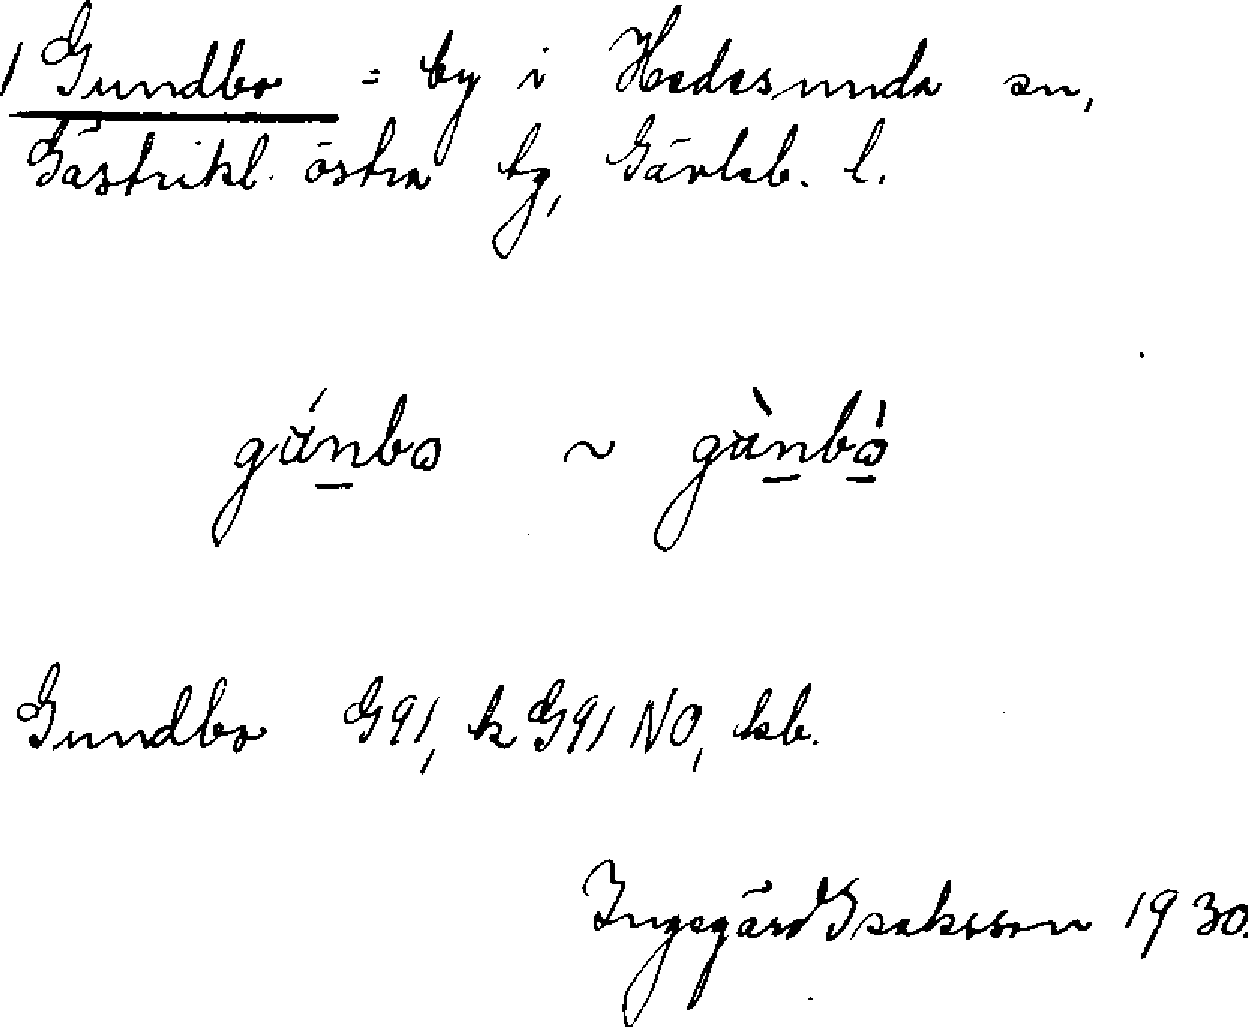 1 Gundbo = by i Hedesunda sn,
Gästrikl. östra tg, Gävleb. l.
gúnbo ~ gùnbó
Gundbo G91, k G91 NO, kb.
Ingegärd Isaksson 1930.